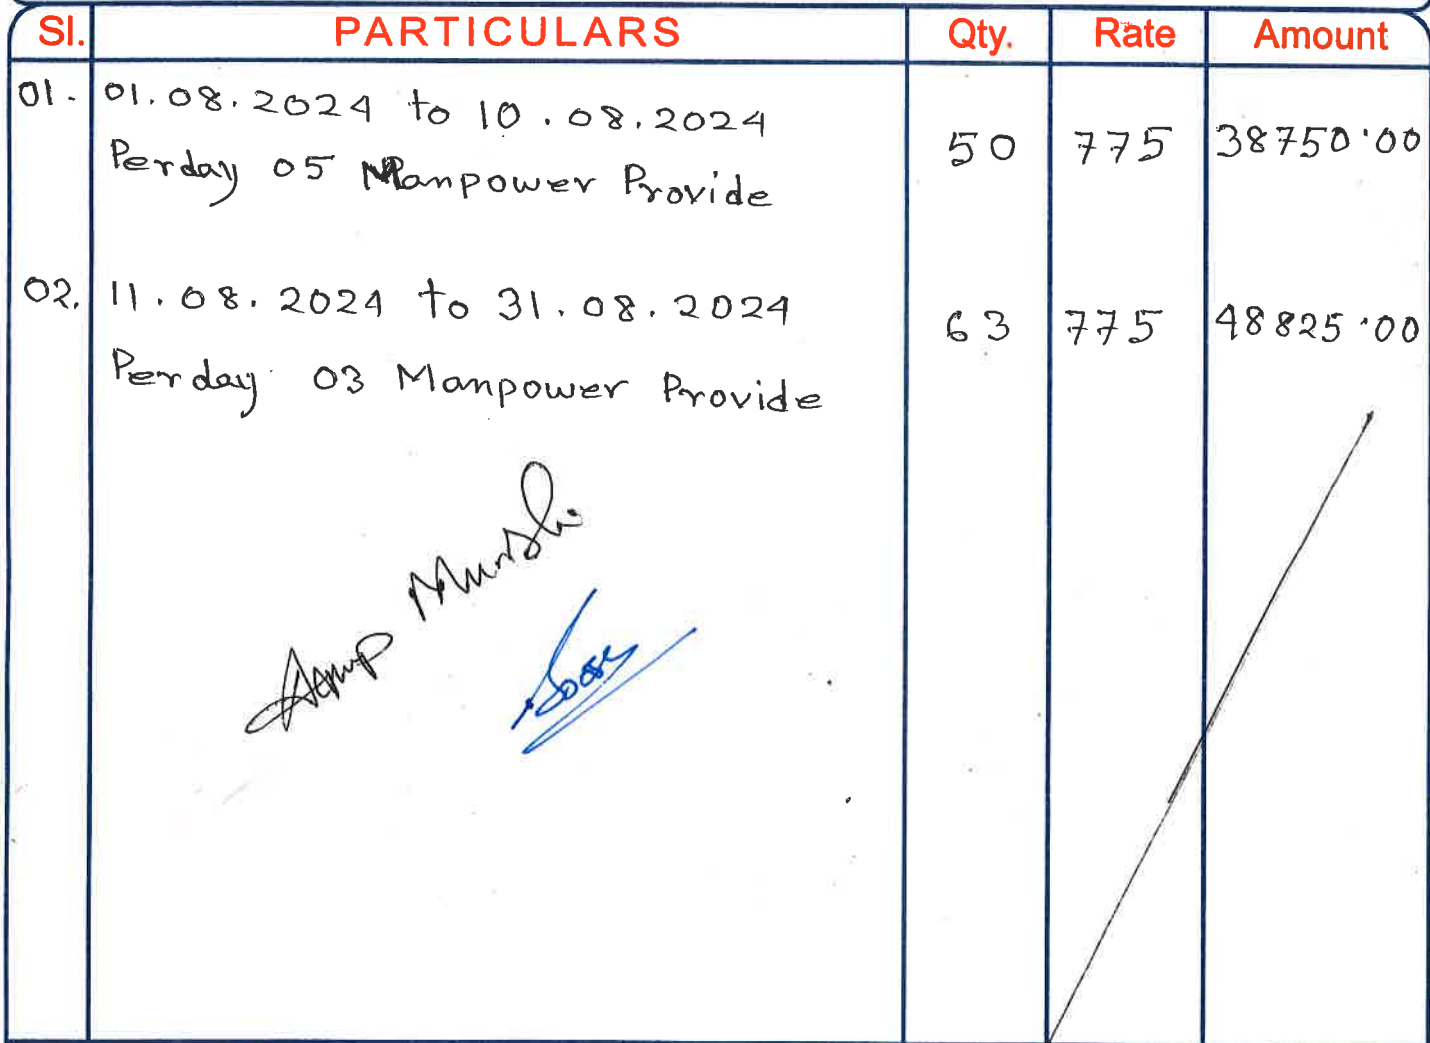 Sl. PARTICULARS Qty. Rate Amount
01. 01.08.2024 to 10.08.2024
Perday 05 Manpower Provide 50 775 38750.00
02. 11.08.2024 to 31.08.2024
Perday 03 Manpower Provide 63 775 48825.00
Anup Munshi